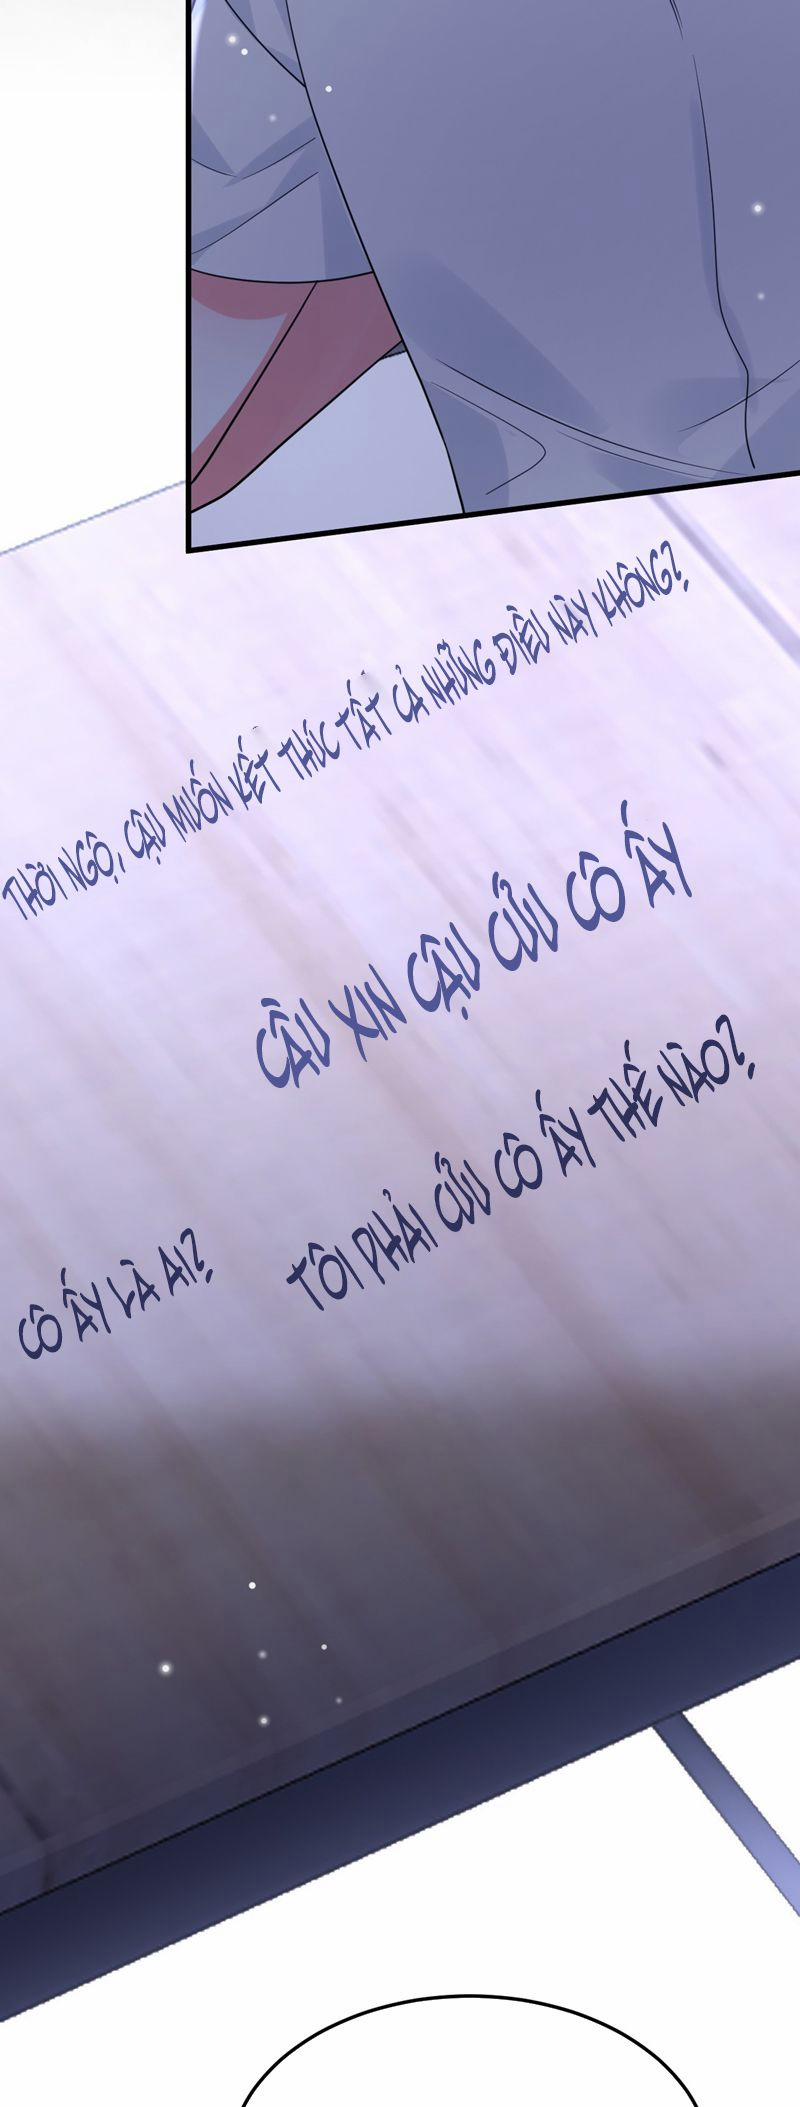 THỜI NGỘ, CẬU MUỐN KẾT THÚC TẤT CẢ NHỮNG ĐIỀU NÀY KHÔNG?
CẦU XIN CẬU CỨU CÔ ẤY
TÔI PHẢI CỨU CÔ ẤY THẾ NÀO?
CÔ ẤY LÀ AI?